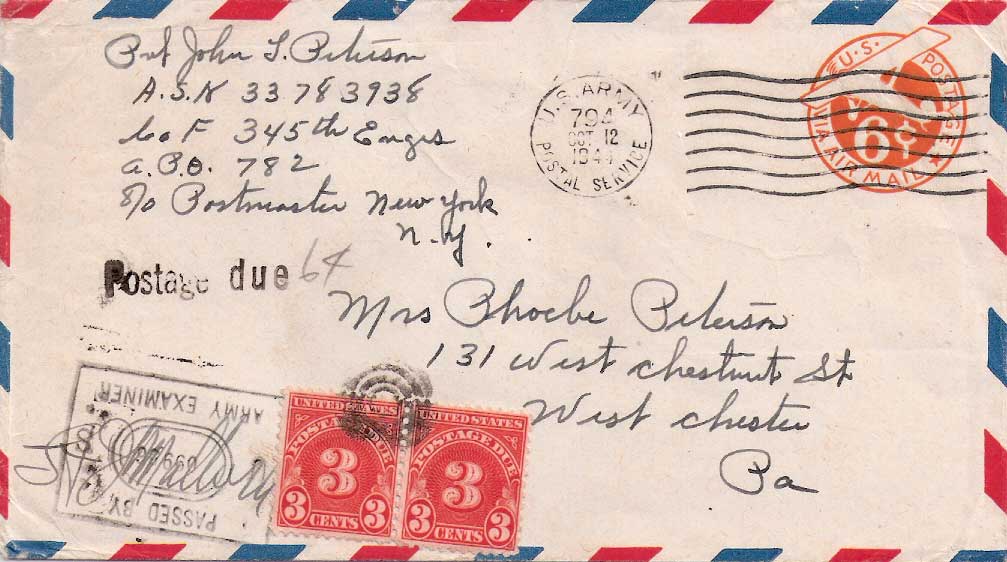 Pvt John L. Peterson
A.S.N 33 783938
Co F 345th Engrs
A.P.O. 782
c/o Postmaster New York
N.Y.
U.S. ARMY
794
OCT 12
1944
POSTAL SERVICE
U.S. POSTAGE
6¢
VIA AIR MAIL
Postage due 6¢
Mrs Phoebe Peterson
131 West Chestnut St.
West Chester
Pa
PASSED BY
ARMY EXAMINER
UNITED STATES
POSTAGE DUE
3
3 CENTS 3
UNITED STATES
POSTAGE DUE
3
3 CENTS 3